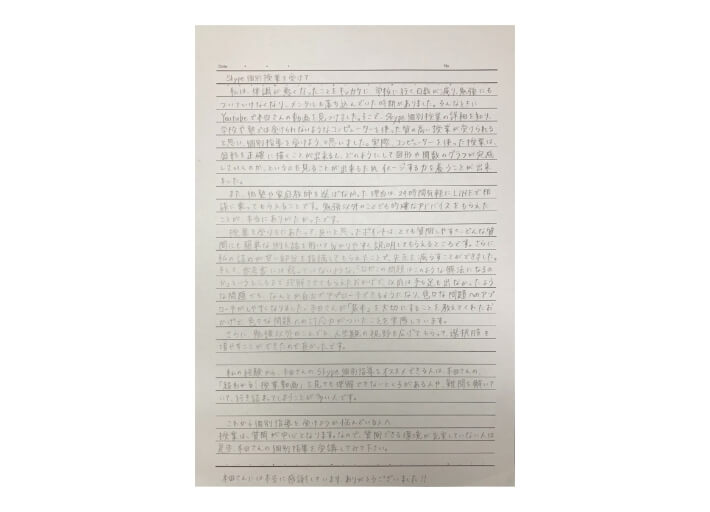 Date ・ ・ No.
Skype個別授業を受けて
私は、体調が悪くなったことをキッカケに、学校に行く日数が減り、勉強にも
ついていけなくなり、メンタルも落ち込んでいた時期がありました。そんなときに
Youtubeで本田さんの動画を見つけました。そこで、Skype個別授業の詳細を知り、
学校や塾では受けられないようなコンピューターを使った質の高い授業が受けられる
と思い、個別指導を受けようと思いました。実際、コンピューターを使った授業は、
図形を正確に描くことが出来るし、どのようにして図形や関数のグラフが完成
していくのか、というのも見ることが出来るためイメージする力を養うことが出来
ました。
また、他塾や家庭教師を選ばなかった理由は、24時間気軽にLINEで相
談に乗ってもらえることです。勉強以外のことでも的確なアドバイスをもらえた
ことが、本当にありがたかったです。
授業を受けるにあたって、良いと思ったポイントは、とても質問しやすく、どんな質
問にも簡単な例え話を用いて分かりやすく説明してもらえるところです。さらに
私の詰めが甘い部分を指摘してもらえたことで、失点を減らすことができました。
そして、参考書には載っていないような、「なぜこの問題はこのような解法になるの
か」というところまで理解させてもらえたおかげで、以前は手も足も出なかったよう
な問題でも、なんとか自分でアプローチできるようになり、色々な問題へのアプ
ローチがしやすくなりました。本田さんが「基本」を大切にすることを教えてくれたお
かげで、色々な問題への対応力がついたことを実感しています。
さらに、勉強以外のことでも、人生観の視野を広げてもらって、選択肢を
増やすことができたので良かったです。
私の経験から、本田さんのSkype個別指導をオススメできる人は、本田さんの、
「超わかる!授業動画」を見ても理解できないところがある人や、難問を解いて
いて、行き詰まってしまうことが多い人です。
これから個別指導を受けようか悩んでいる人へ
授業は、質問が中心となります。なので、質問できる環境が充実していない人は
是非、本田さんの個別指導を受講してみて下さい。
本田さんには本当に感謝しています。ありがとうございました!!